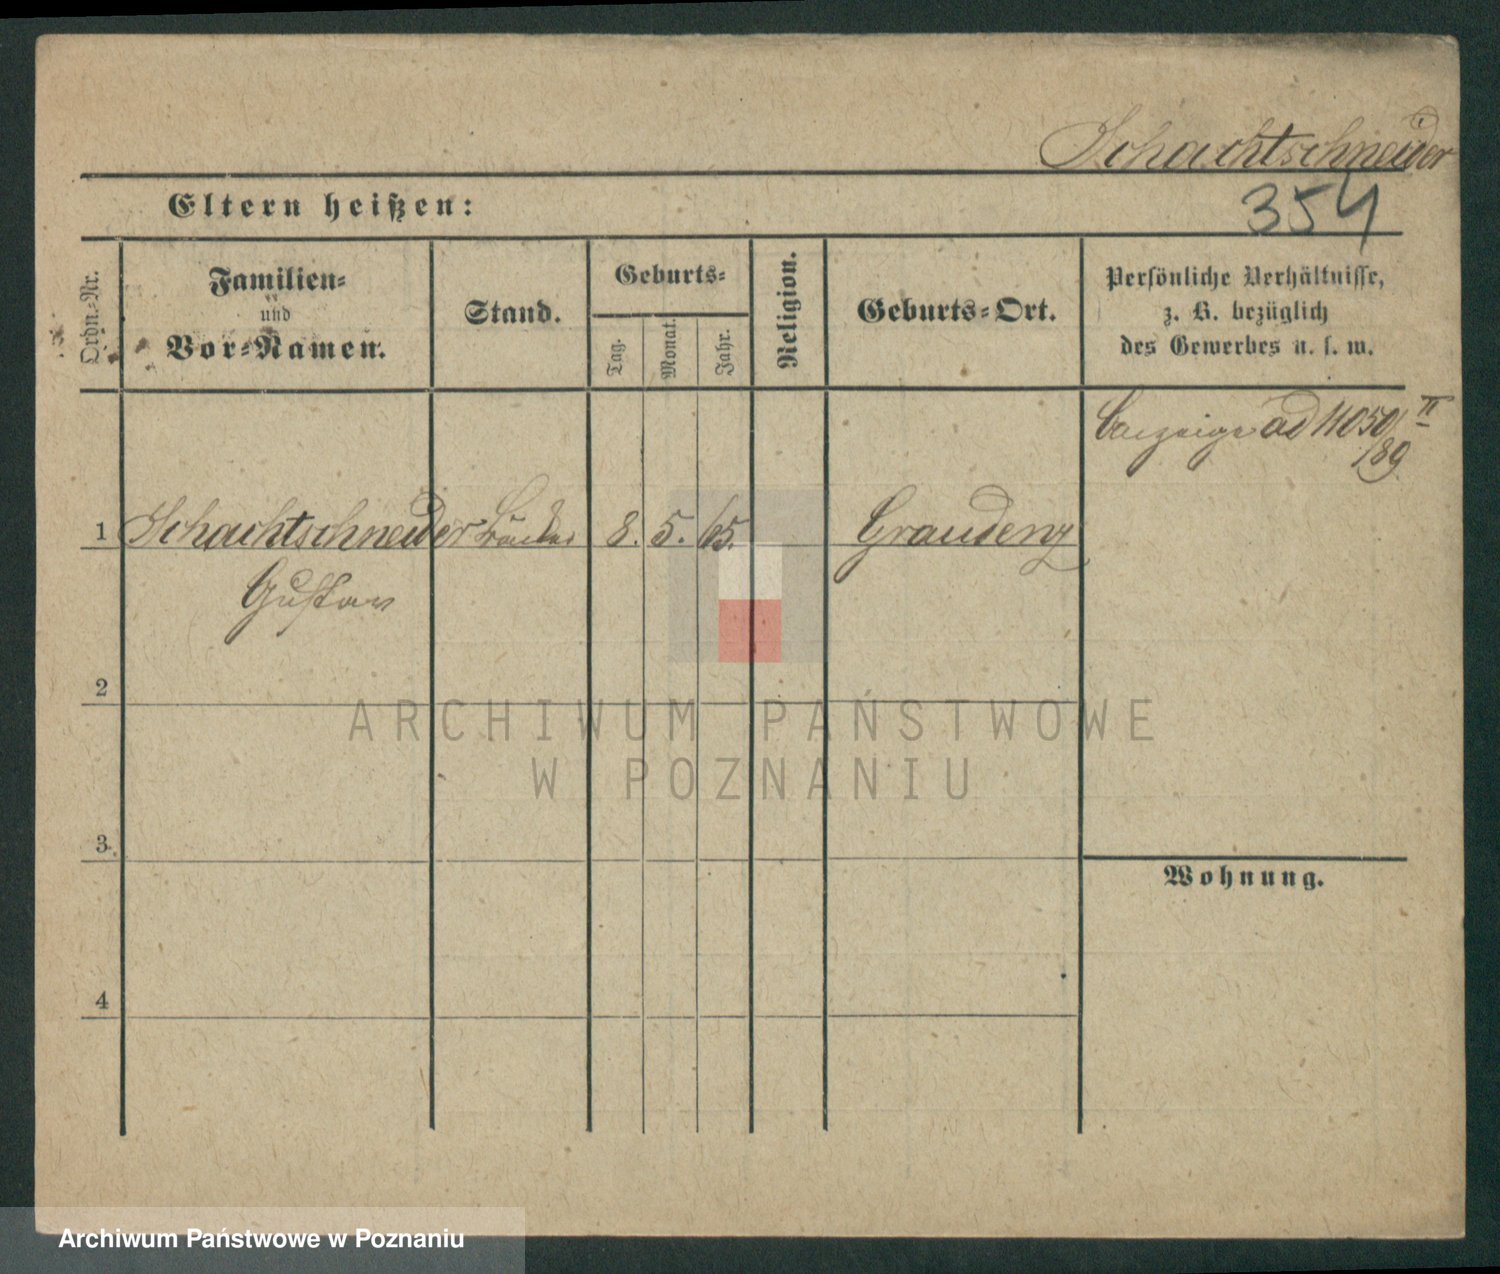 Schachtschneider
354
Eltern heißen:
Ordn.-Nr.
Familien-
und
Vor-Namen.
Stand.
Geburts-
Tag.
Monat.
Jahr.
Religion.
Geburts-Ort.
Persönliche Verhältnisse,
z. B. bezüglich
des Gewerbes u. s. w.
ad 11050/II
/89.
1 Schachtschneider 8. 5. 65. Graudenz
Gustav
2
3
4
Wohnung.
ARCHIWUM PAŃSTWOWE
W POZNANIU
Archiwum Państwowe w Poznaniu